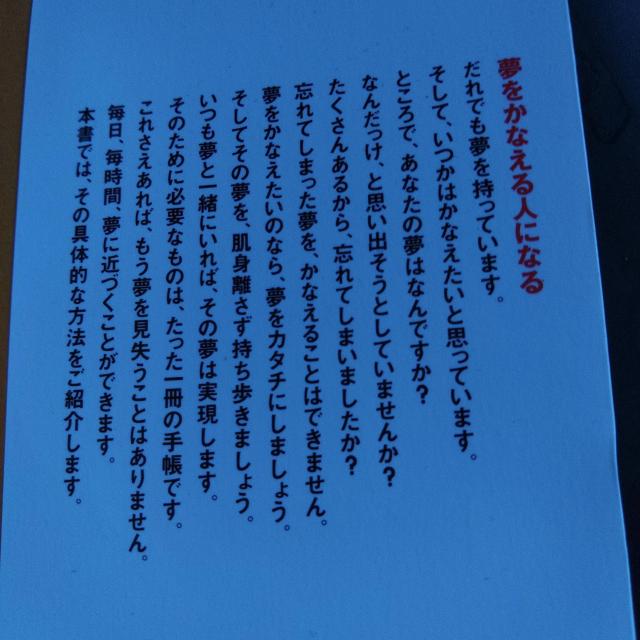 夢をかなえる人になる
だれでも夢を持っています。
そして、いつかはかなえたいと思っています。
ところで、あなたの夢はなんですか？
なんだっけ、と思い出そうとしていませんか？
たくさんあるから、忘れてしまいましたか？
忘れてしまった夢を、かなえることはできません。
夢をかなえたいのなら、夢をカタチにしましょう。
そしてその夢を、肌身離さず持ち歩きましょう。
いつも夢と一緒にいれば、その夢は実現します。
そのために必要なものは、たった一冊の手帳です。
これさえあれば、もう夢を見失うことはありません。
毎日、毎時間、夢に近づくことができます。
本書では、その具体的な方法をご紹介します。